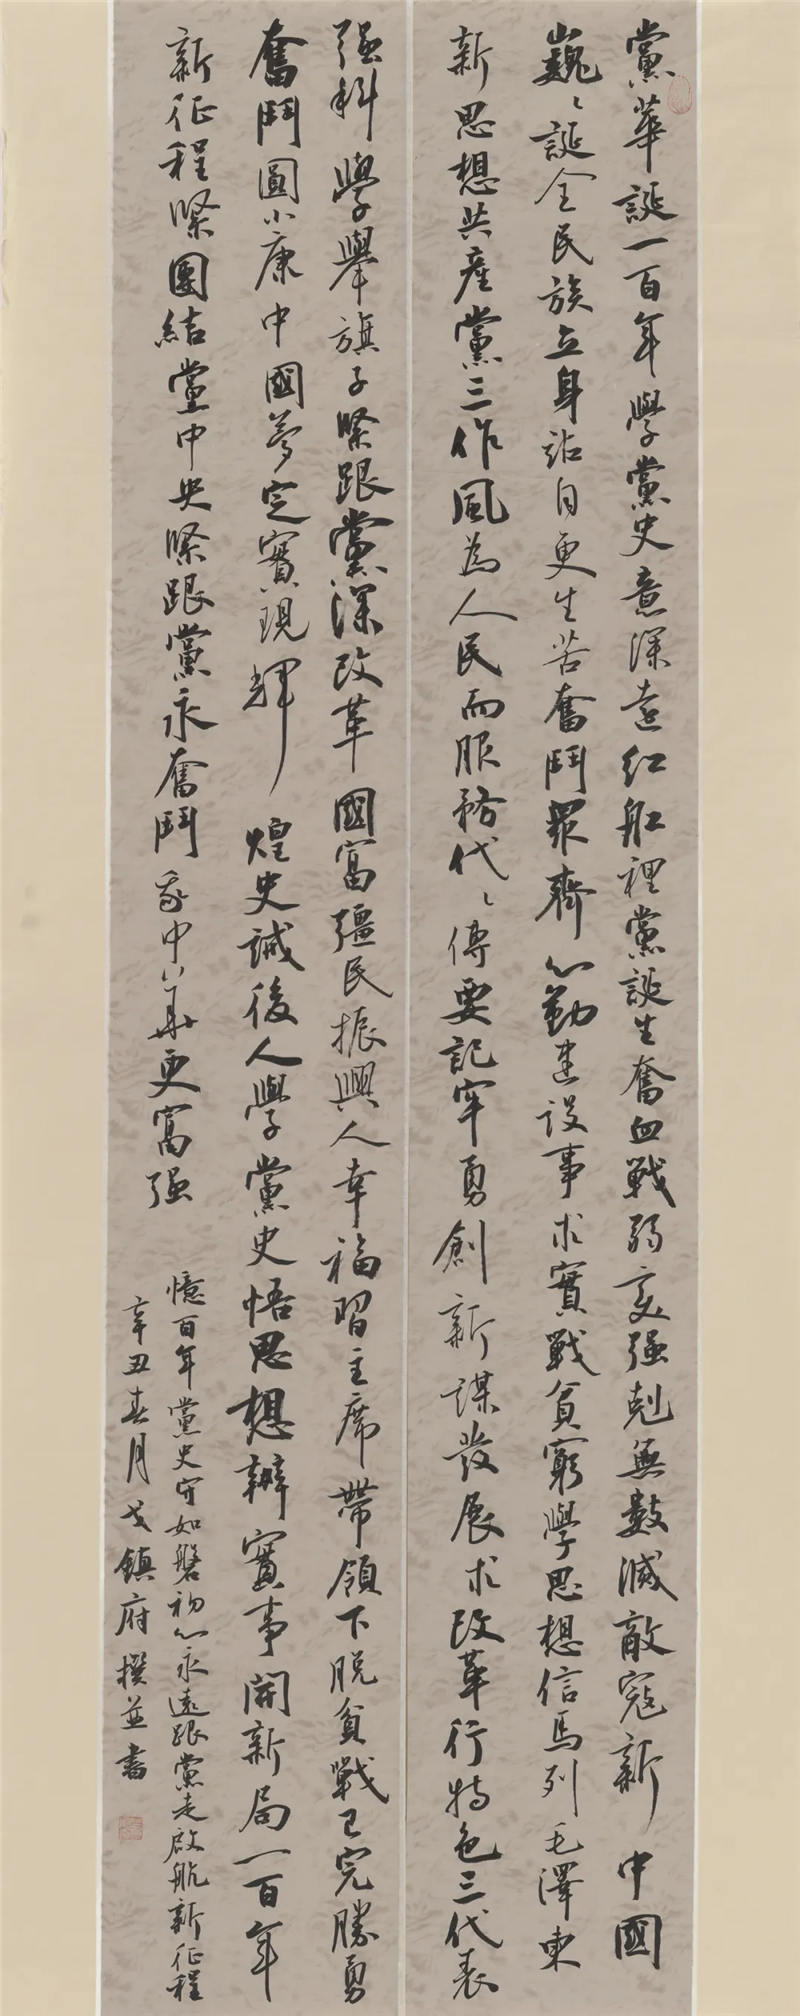 黨華誕一百年學黨史意深遠紅船裡黨誕生奮血戰弱變强剋無數滅敵寇新中國
巍〻誕全民族立身站自更生苦奮鬥眾齊心勤建設事求實戰貧窮學思想信馬列毛澤東
新思想共產黨三作風為人民而服務代〻傳要記牢勇創新謀發展求改革行特色三代表
强科學舉旗子緊跟黨深改革國富彊民振興人幸福習主席帶領下脱貧戰已完勝勇
奮鬥圓小康中國夢定實現輝煌史誡後人學黨史悟思想辦實事開新局一百年
新征程緊團結黨中央緊跟黨永奮鬥我中華更富强
憶百年黨史守如磐初心永遠跟黨走啟航新征程
辛丑春月戈鎮府撰並書